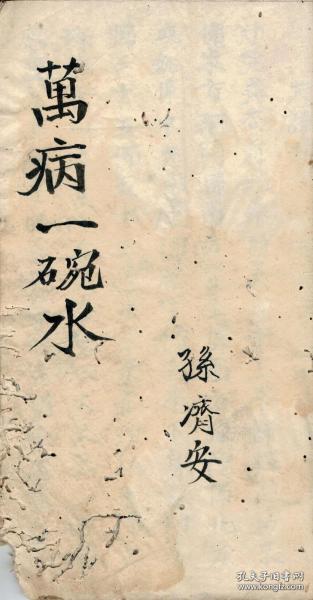 萬病一碗水
孫濟安
孔夫子旧书网